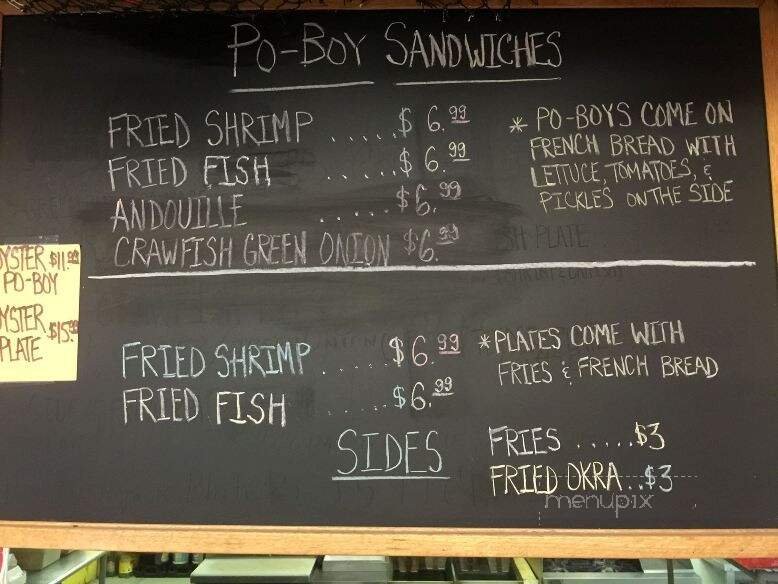 PO-BOY SANDWICHES
FRIED SHRIMP ..... $ 6.99
FRIED FISH ..... $ 6.99
ANDOUILLE ..... $6.99
CRAWFISH GREEN ONION $6.99
* PO-BOYS COME ON
FRENCH BREAD WITH
LETTUCE, TOMATOES, &
PICKLES ON THE SIDE
SH PLATE
OYSTER $11.99
PO-BOY
OYSTER $15.99
PLATE
FRIED SHRIMP ..... $6.99
FRIED FISH ..... $6.99
* PLATES COME WITH
FRIES & FRENCH BREAD
SIDES
FRIES ..... $3
FRIED OKRA .. $3
menupix